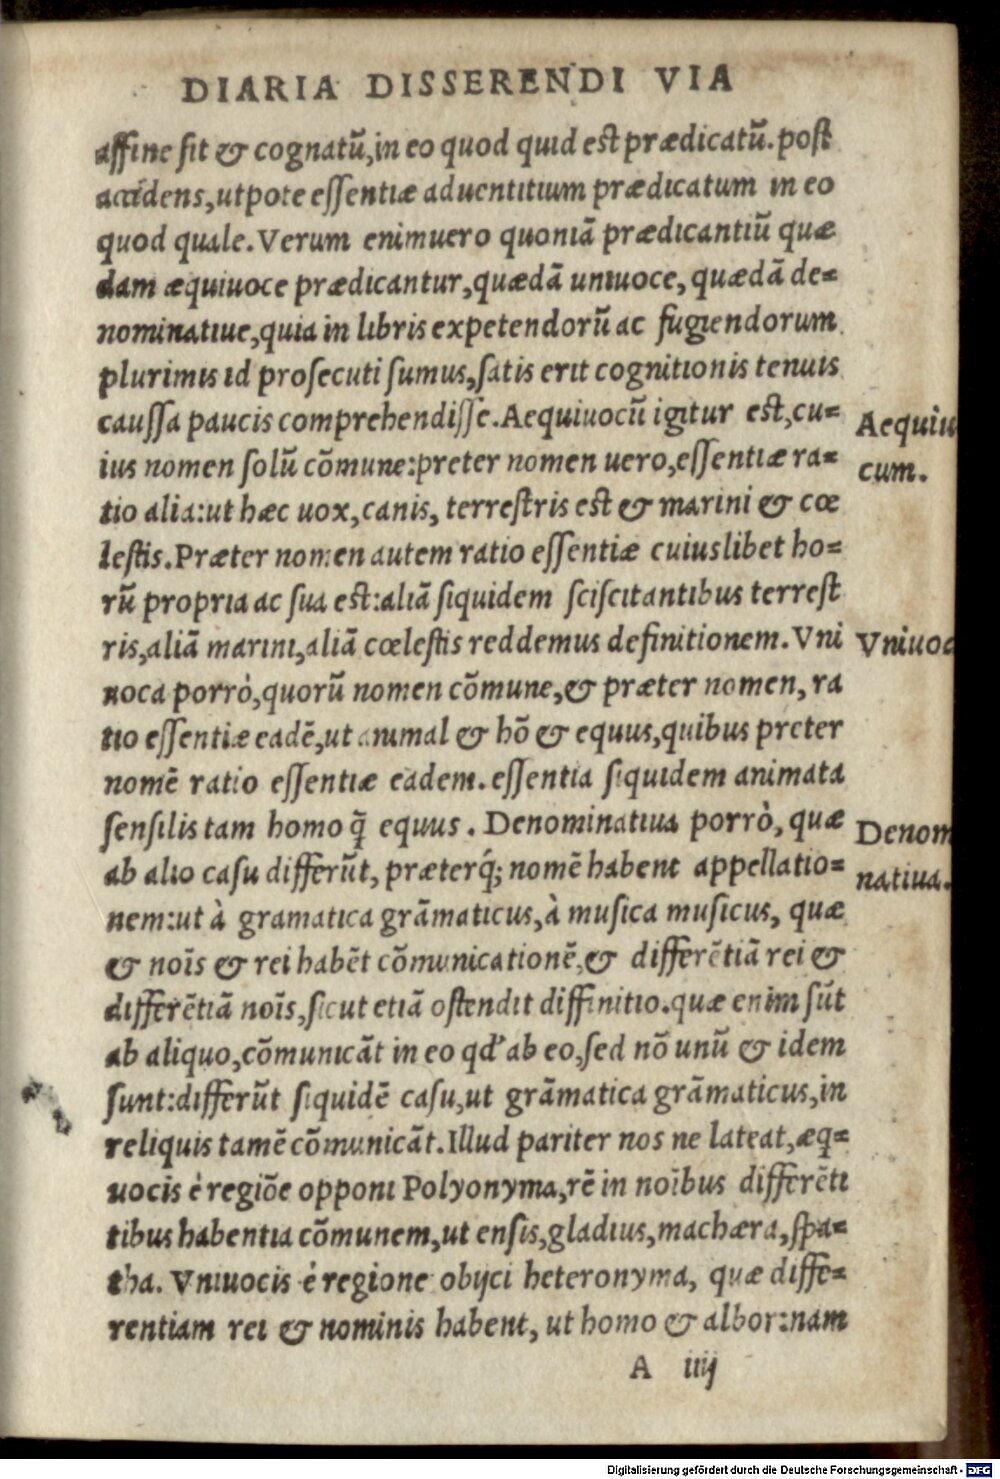 DIARIA DISSERENDI VIA
affine sit & cognatũ,in eo quod quid est prædicatũ. post
accidens,utpote essentiæ aduentitium prædicatum in eo
quod quale. Verum enimuero quoniã prædicantiũ quæ
dam æquiuoce prædicantur,quædã uniuoce, quædã de=
nominatiue,quia in libris expetendorũ ac fugiendorum
plurimis id prosecuti sumus,satis erit cognitionis tenuis
caussa paucis comprehendisse. Aequiuocũ igitur est,cu=
ius nomen solũ cõmune:preter nomen uero,essentiæ ra=
tio alia:ut hæc uox,canis, terrestris est & marini & cœ
lestis. Præter nomen autem ratio essentiæ cuiuslibet ho=
rũ propria ac sua est:aliã siquidem sciscitantibus terrest
ris,aliã marini,aliã cœlestis reddemus definitionem. Vni
uoca porrò,quorũ nomen cõmune,& præter nomen, ra
tio essentiæ eadē,ut animal & hõ & equus,quibus preter
nomē ratio essentiæ eadem. essentia siquidem animata
sensilis tam homo q̃ equus. Denominatiua porrò, quæ
ab alio casu differũt, præterq́; nomē habent appellatio=
nem:ut à gramatica grãmaticus,à musica musicus, quæ
& noīs & rei habēt cõmunicationē,& differētiã rei &
differētiã noīs,sicut etiã ostendit diffinitio. quæ enim sũt
ab aliquo,cõmunicãt in eo qd' ab eo,sed nõ unũ & idem
sunt:differũt siquidē casu,ut grãmatica grãmaticus,in
reliquis tamē cõmunicãt. Illud pariter nos ne lateat,æq=
uocis è regiõe opponi Polyonyma,rē in noībus differēti
tibus habentia cõmunem,ut ensis,gladius,machæra,spa=
tha. Vniuocis è regione obijci heteronyma, quæ diffe=
rentiam rei & nominis habent, ut homo & albor:nam
A iiij
Aequiu
cum.
Vniuoc
Denom
natiua.
Digitalisierung gefördert durch die Deutsche Forschungsgemeinschaft - DFG